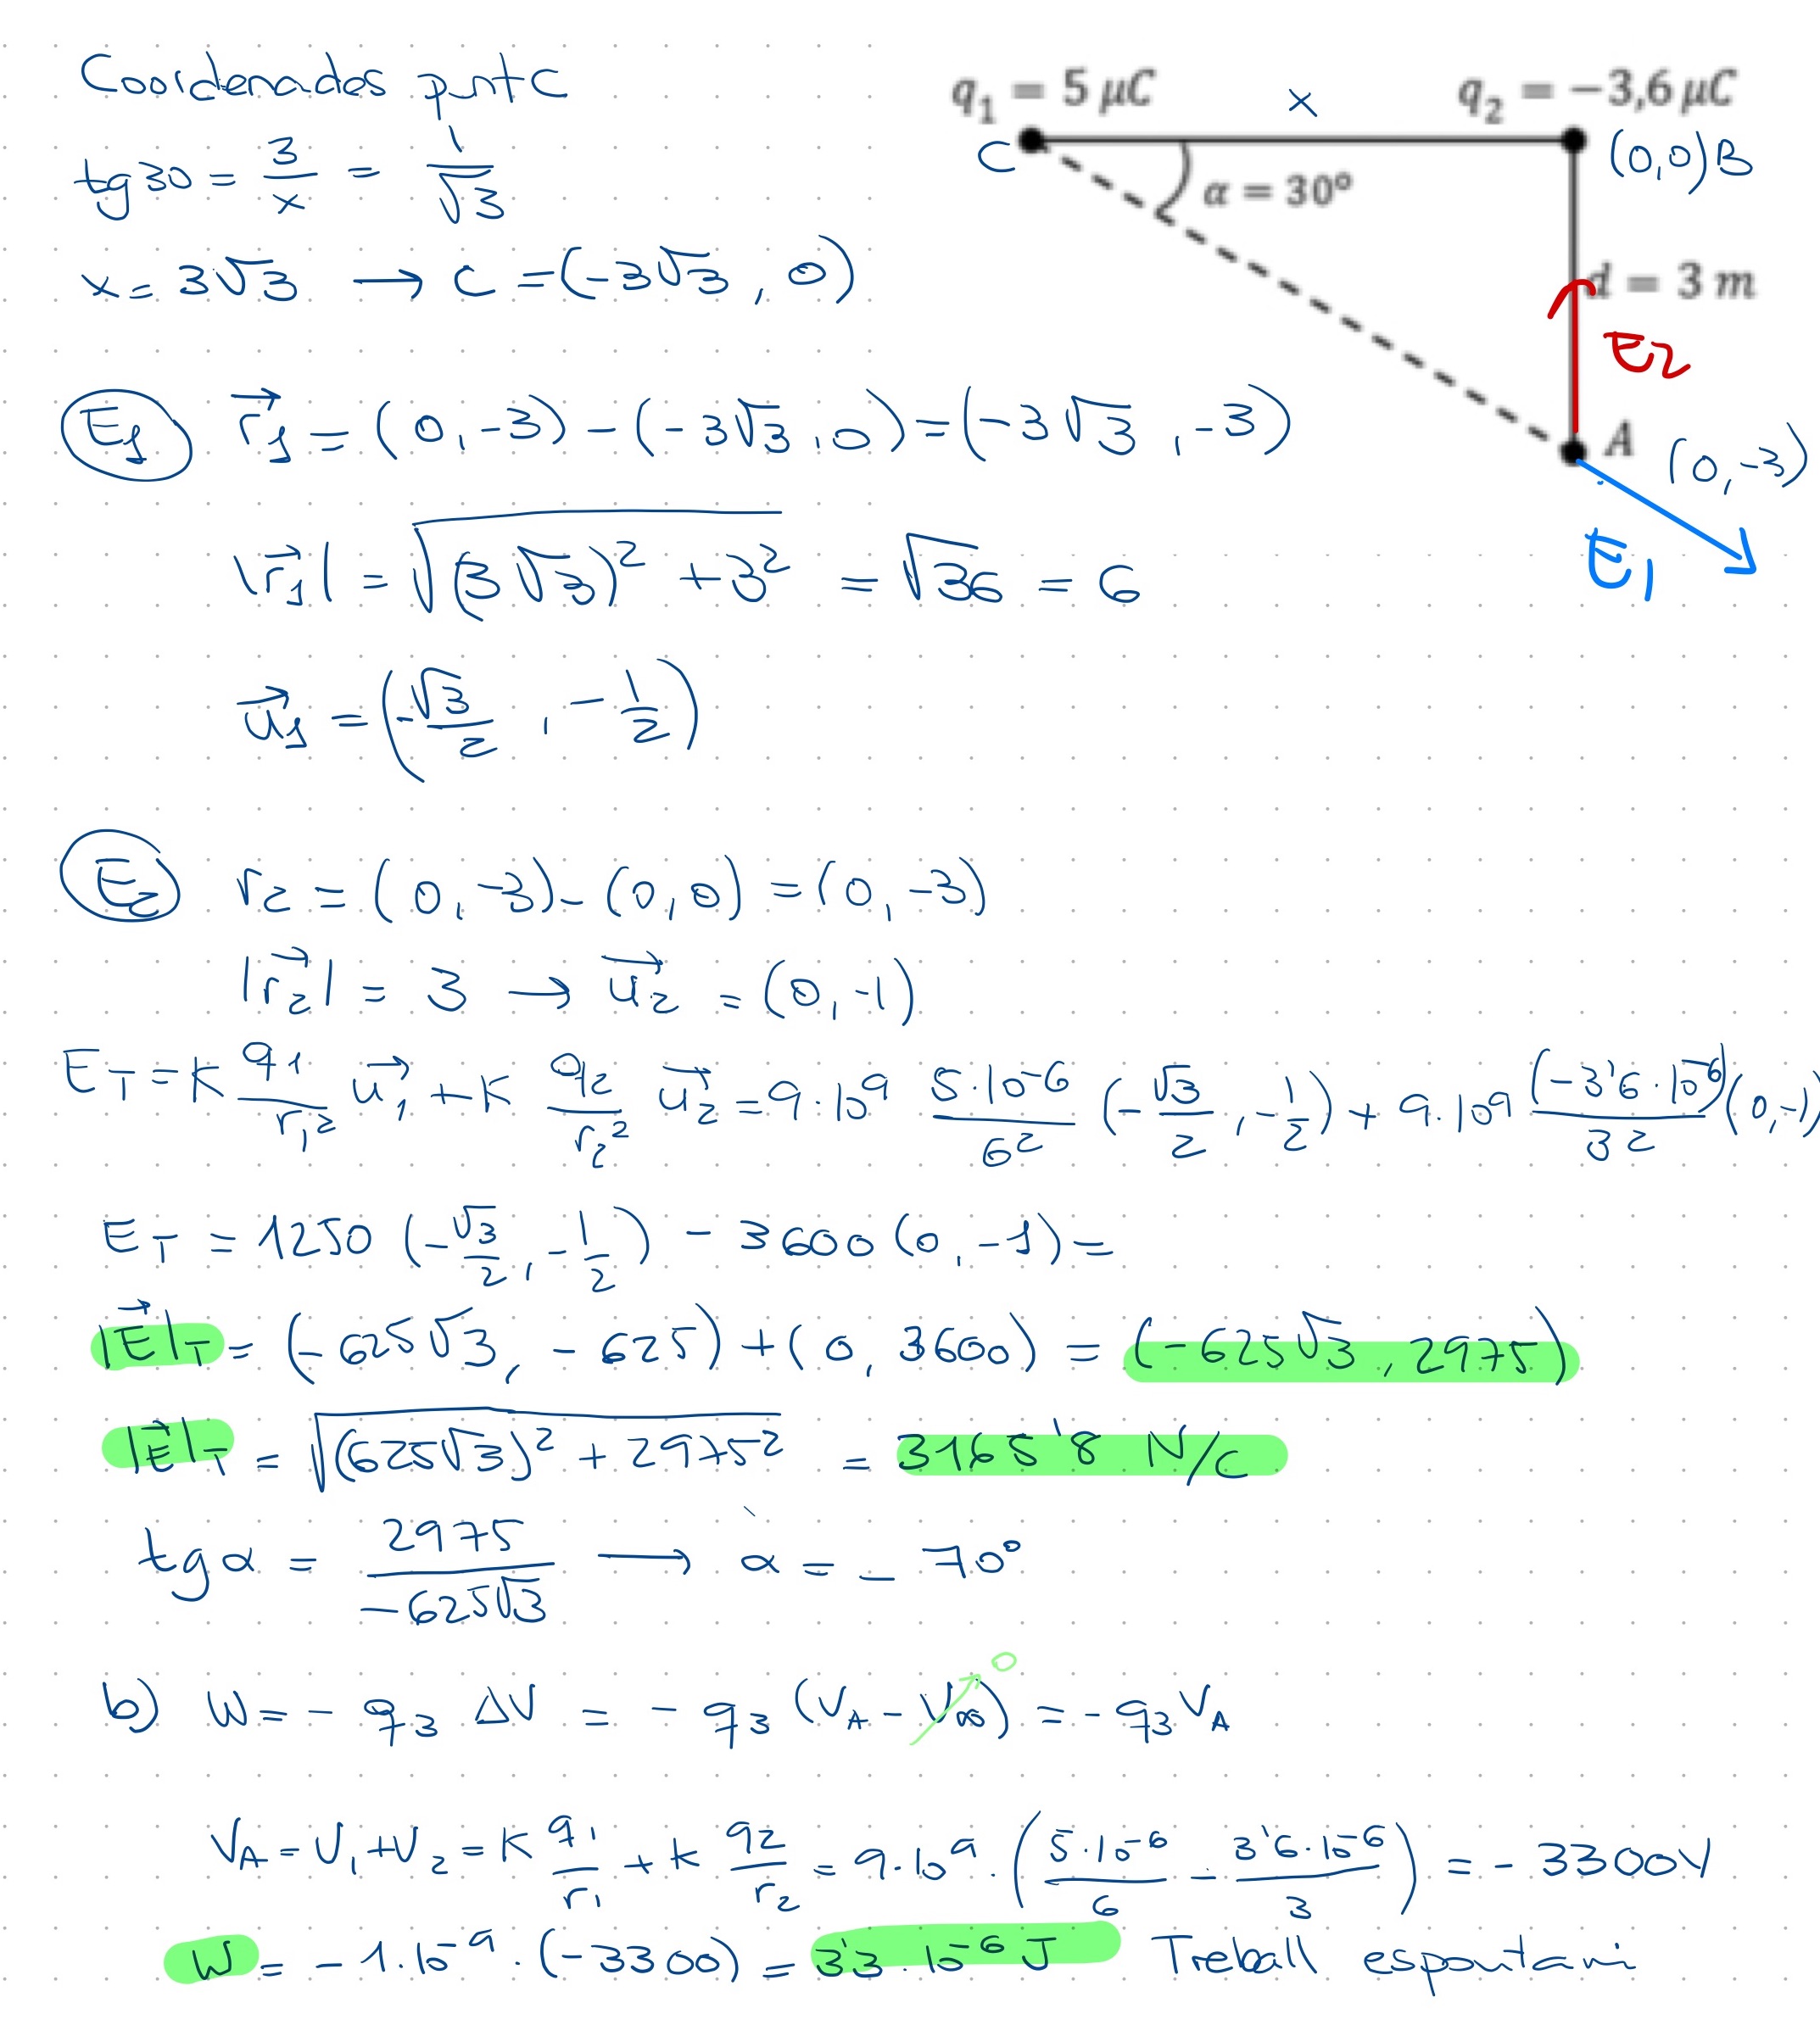 Coordenades punt C
tg 30 = 3/x = 1/√3
x = 3√3 → C = (-3√3, 0)
q₁ = 5 μC
x
q₂ = −3,6 μC
C
(0,0) B
α = 30º
d = 3 m
E2
A
(0,-3)
E1
E₁ r⃗₁ = (0,-3) - (-3√3, 0) = (-3√3, -3)
|r⃗₁| = √((3√3)² + 3²) = √36 = 6
u⃗₁ = (-√3/2, -1/2)
E₂ r₂ = (0,-3) - (0,0) = (0,-3)
|r⃗₂| = 3 → u⃗₂ = (0,-1)
E_T = K q₁/r₁² u⃗₁ + K q₂/r₂² u⃗₂ = 9·10⁹ 5·10⁻⁶/6² (-√3/2, -1/2) + 9·10⁹ (-3'6·10⁻⁶)/3² (0,-1)
E_T = 1250 (-√3/2, -1/2) - 3600 (0,-1) =
|E⃗|_T = (-625√3, -625) + (0, 3600) = (-625√3, 2975)
|E⃗|_T = √((625√3)² + 2975²) = 3165'8 N/C
tg α = 2975/-625√3 → α = - 70º
b) W = - q₃ ΔV = - q₃ (V_A - V_∞) = - q₃ V_A
0
V_A = V₁ + V₂ = K q₁/r₁ + K q₂/r₂ = 9·10⁹ · (5·10⁻⁶/6 - 3'6·10⁻⁶/3) = - 3300 V
W = - 1·10⁻⁹ · (-3300) = 3'3·10⁻⁶ J Treball espontani